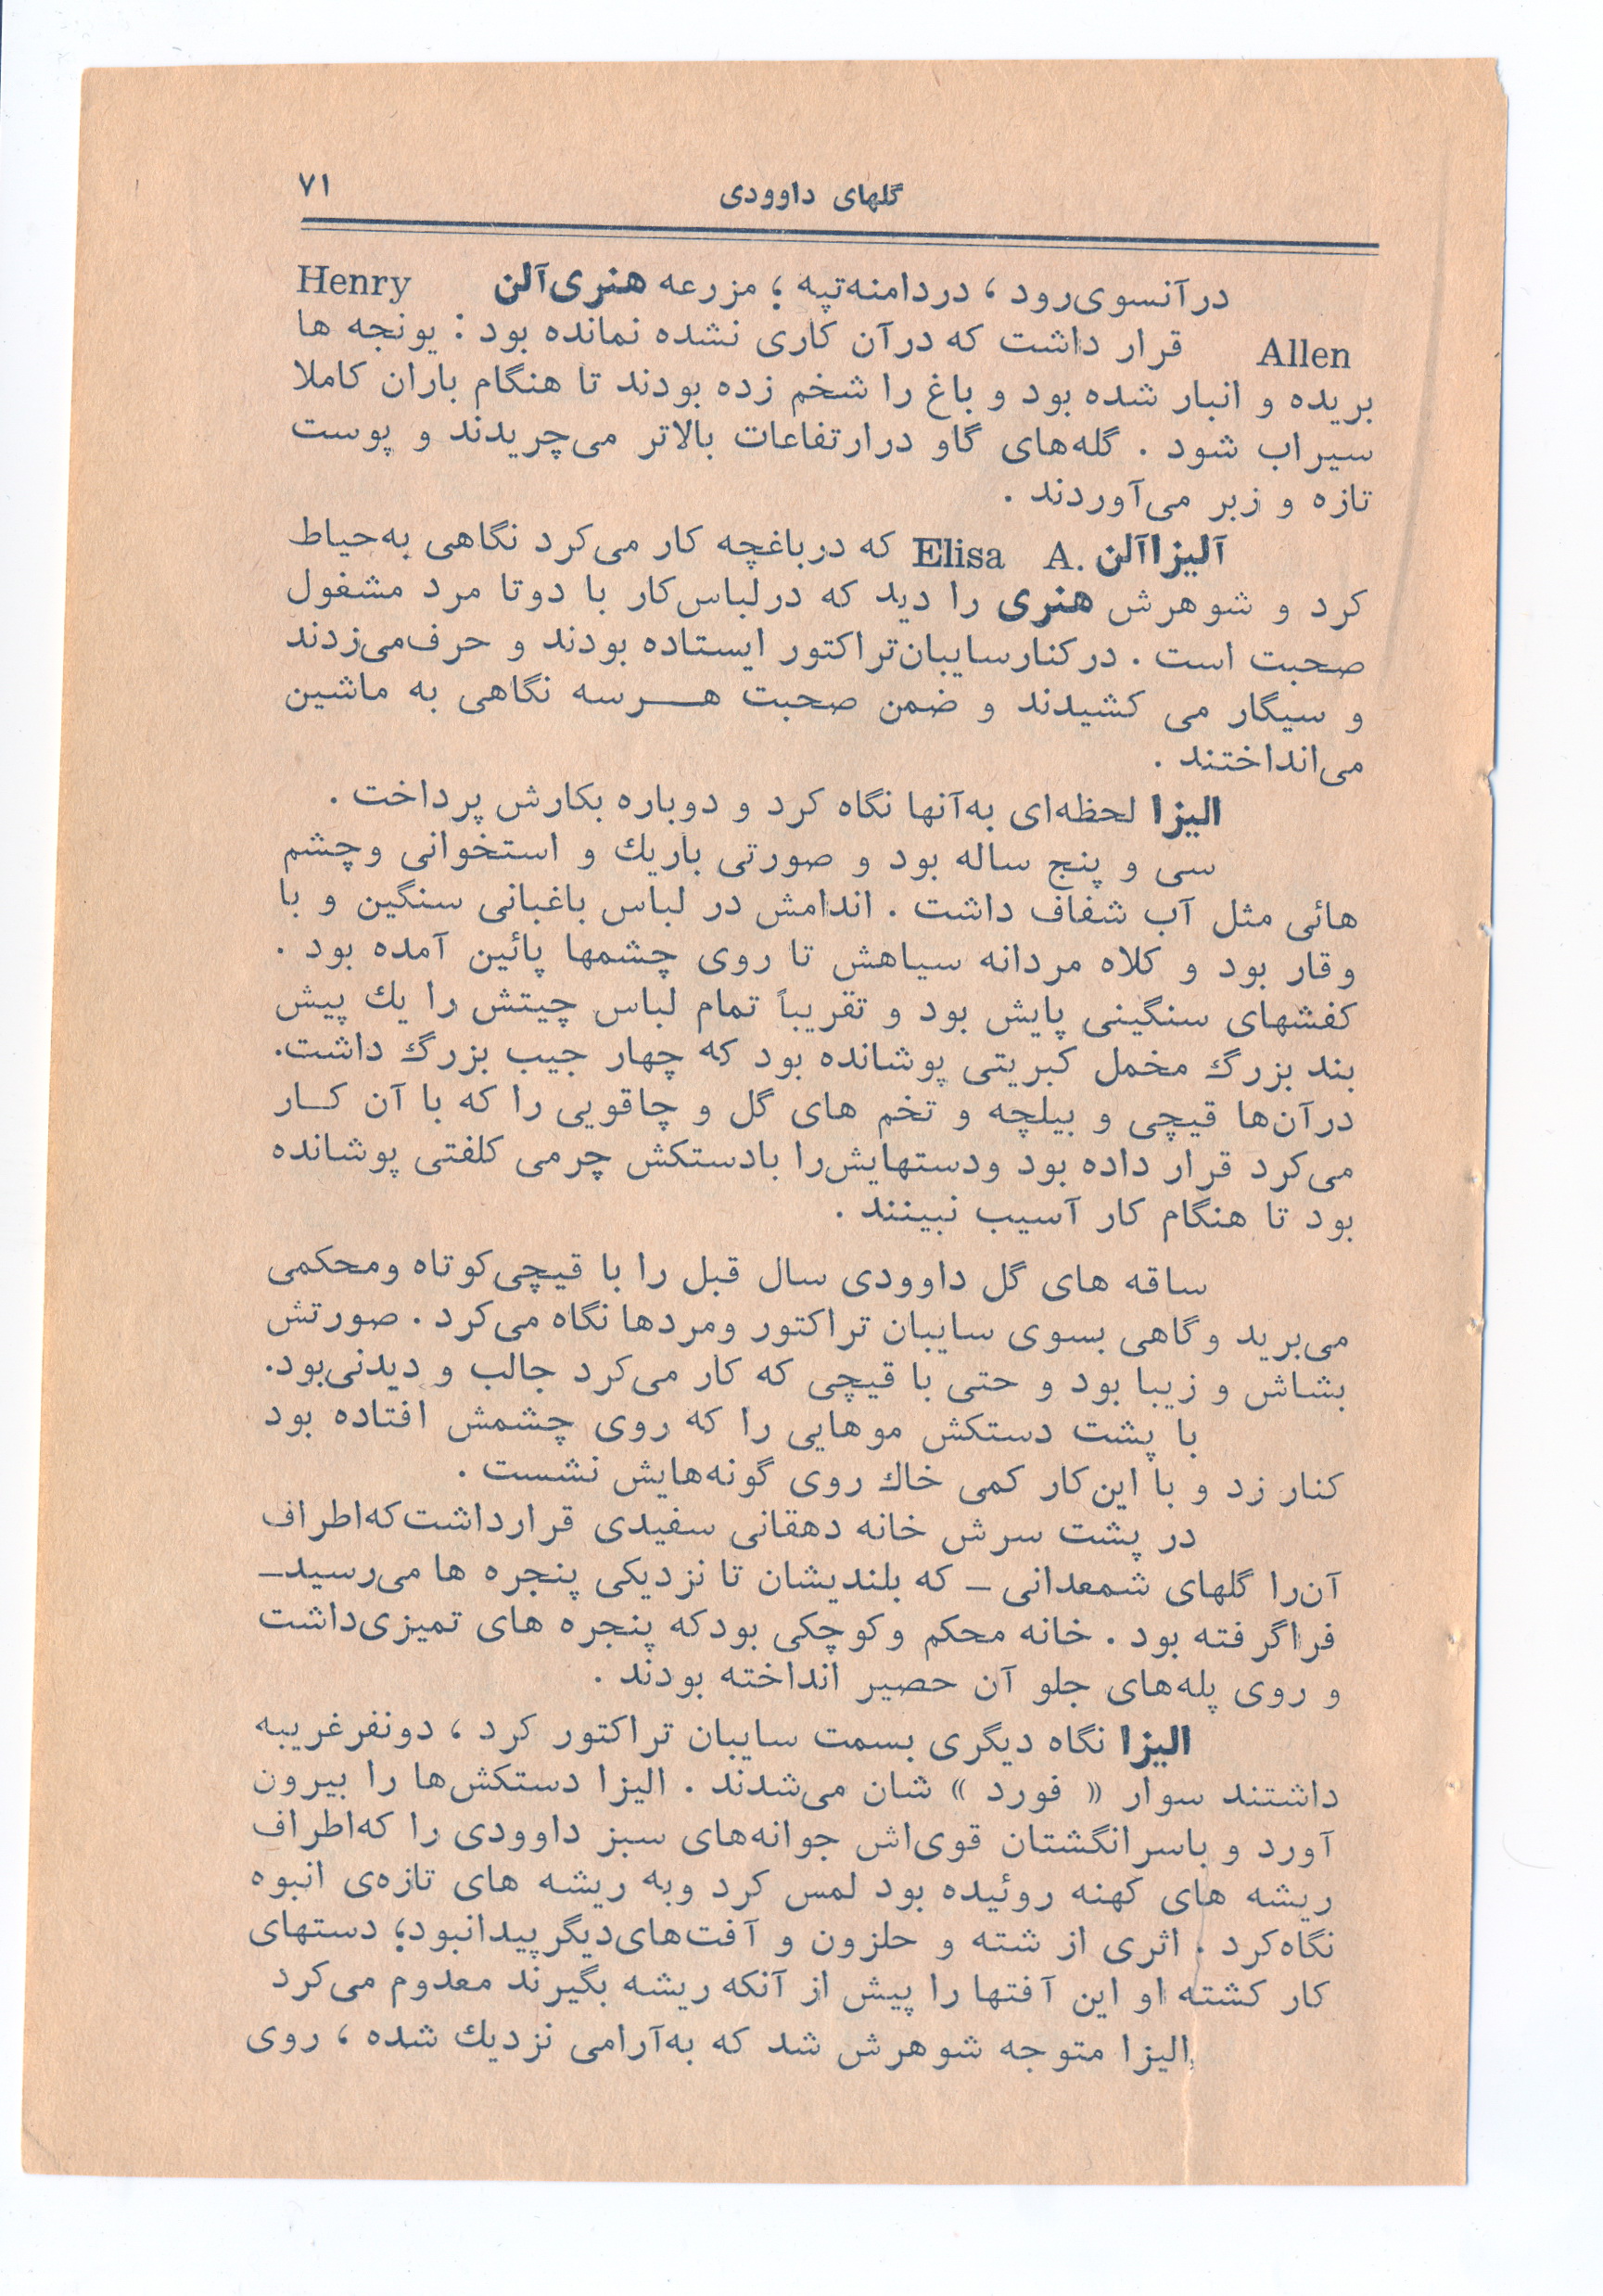 گلهای داوودی ۷۱
در آنسوی‌رود ، در دامنه‌تپه ؛ مزرعه هنری‌آلن Henry
Allen قرار داشت که درآن کاری نشده نمانده بود : یونجه ها
بریده و انبار شده بود و باغ را شخم زده بودند تا هنگام باران کاملا
سیراب شود . گله‌های گاو درارتفاعات بالاتر می‌چریدند و پوست
تازه و زبر می‌آوردند .
آلیزاآلن Elisa A. که درباغچه کار می‌کرد نگاهی به‌حیاط
کرد و شوهرش هنری را دید که درلباس‌کار با دوتا مرد مشغول
صحبت است . درکنارسایبان‌تراکتور ایستاده بودند و حرف‌می‌زدند
و سیگار می کشیدند و ضمن صحبت هـــرسه نگاهی به ماشین
می‌انداختند .
الیزا لحظه‌ای به‌آنها نگاه کرد و دوباره بکارش پرداخت .
سی و پنج ساله بود و صورتی باریك و استخوانی وچشم
هائی مثل آب شفاف داشت . اندامش در لباس باغبانی سنگین و با
وقار بود و کلاه مردانه سیاهش تا روی چشمها پائین آمده بود .
کفشهای سنگینی پایش بود و تقریباً تمام لباس چیتش را یك پیش
بند بزرگ مخمل کبریتی پوشانده بود که چهار جیب بزرگ داشت.
درآن‌ها قیچی و بیلچه و تخم های گل و چاقویی را که با آن کــار
می‌کرد قرار داده بود ودستهایش‌را بادستکش چرمی کلفتی پوشانده
بود تا هنگام کار آسیب نبینند .
ساقه های گل داوودی سال قبل را با قیچی‌کوتاه ومحکمی
می‌برید وگاهی بسوی سایبان تراکتور ومردها نگاه می‌کرد . صورتش
بشاش و زیبا بود و حتی با قیچی که کار می‌کرد جالب و دیدنی‌بود.
با پشت دستکش موهایی را که روی چشمش افتاده بود
کنار زد و با این‌کار کمی خاك روی گونه‌هایش نشست .
در پشت سرش خانه دهقانی سفیدی قرارداشت‌که‌اطراف
آن‌را گلهای شمعدانی ـ که بلندیشان تا نزدیکی پنجره ها می‌رسیدـ
فراگرفته بود . خانه محکم وکوچکی بودکه پنجره های تمیزی‌داشت
و روی پله‌های جلو آن حصیر انداخته بودند .
الیزا نگاه دیگری بسمت سایبان تراکتور کرد ، دونفرغریبه
داشتند سوار « فورد » شان می‌شدند . الیزا دستکش‌ها را بیرون
آورد و باسرانگشتان قوی‌اش جوانه‌های سبز داوودی را که‌اطراف
ریشه های کهنه روئیده بود لمس کرد وبه ریشه های تازه‌ی انبوه
نگاه‌کرد . اثری از شته و حلزون و آفت‌های‌دیگرپیدانبود؛ دستهای
کار کشته او این آفتها را پیش از آنکه ریشه بگیرند معدوم می‌کرد
الیزا متوجه شوهرش شد که به‌آرامی نزدیك شده ، روی